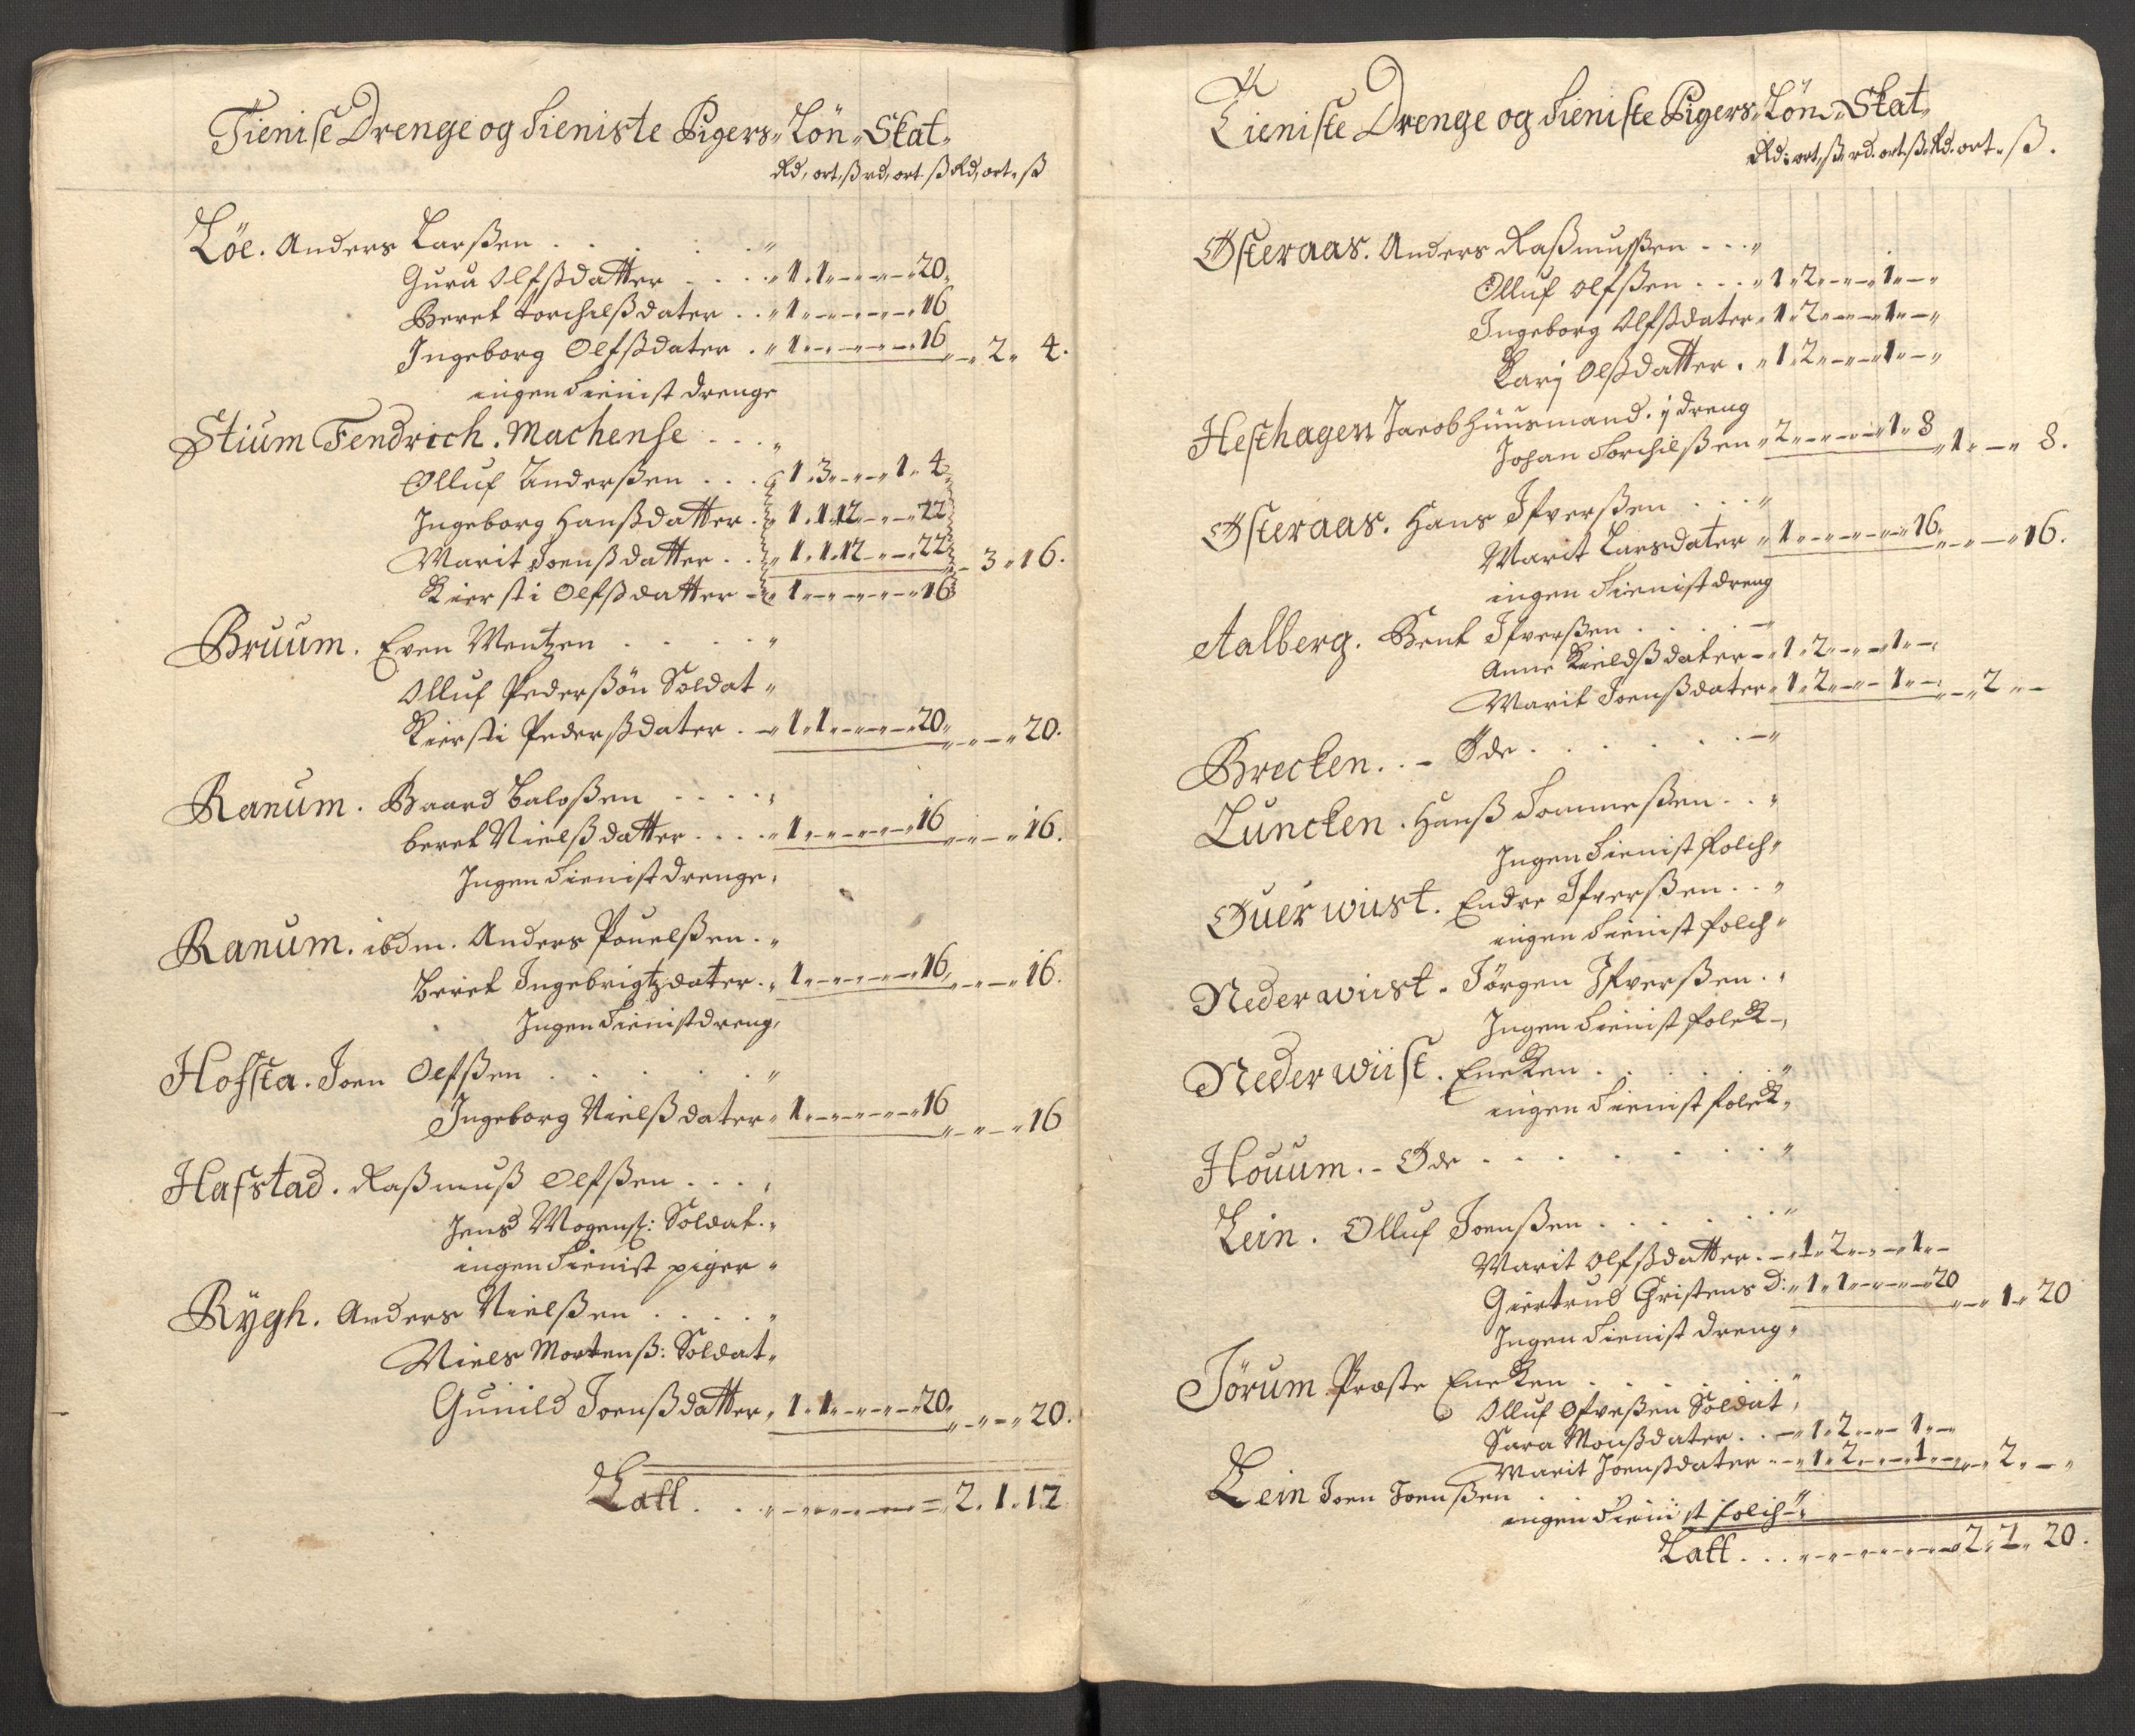 Tienise Drenge og tieniste Pigers Lön Skat
Rd, ort, ß rd, ort ß Rd, ort, ß
Löe. Anders Larßen . . . . "
Guru Olfßdatter . . . 1. 1 - - - 20
Beret torchilßdater . . 1 - - - 16
Ingeborg Olfßdater . 1 - - - 16 - 2. 4.
ingen tienist drenge
Stium Fendrich. Machense . . . "
Olluf Anderßen . . . 1. 3. - - 1. 4
Ingeborg Hanßdatter . 1. 1. 12 - - 22
Marit Joenßdatter . . 1. 1. 12 - - 22 - 3. 16.
Kiersti Olfßdatter - 1 - - - 16
Bruum. Even Mentzen . . . . "
Olluf Pederßön Soldat "
Kiersti Pederßdater . 1. 1. - - - 20 - - 20.
Ranum. Baard Baloßen . . . . "
beret Nielßdatter . . . . 1 - - - 16 - - 16.
Ingen tienist drenge,
Ranum. ibdm. Anders Pouelßen . "
Beret Ingebrigtzdater . 1 - - - 16 - - 16.
Ingen tienist dreng,
Hofsta. Joen Olfßen . . . . "
Ingeborg Nielßdater 1 - - - 16 - - 16
Hafstad. Raßmuß Olfßen . . . "
Jens Mogens: Soldat . "
ingen tienist piger "
Rÿgh. Anders Nielßen . . . . "
Niels Mortenß: Soldat "
Gunild Joenßdatter, 1. 1 - - - 20 - - 20.
Latt . . . - - - = 2. 1. 12
Tieniste Drenge og tieniste Pigers Lön Skat
Rd: ort, ß, rd. ort ß Rd. ort. ß.
Østeraas. Anders Raßmußen . . . "
Olluf olfßen . . . 1. 2 - - 1 - "
Ingeborg Olfßdater 1. 2 - - 1 - "
Karj Olßdatter . 1. 2 - - 1 - "
Hesthagen Jacob huusmand. j dreng
Johan torchilßen 2 - - - 1. 8 1. - 8.
Østeraas. Hans Ifverßen . . . "
Marit Larsdater 1 - - - 16 - - 16.
ingen tienist dreng
Aalberg. Bent Ifverßen . . . . -
Anne Kieldßdater - 1. 2 - - 1 -
Marit Joenßdater 1. 2 - - 1 - - 2 -
Brecken. . - Øde . . . . . - "
Luncken. Hanß Tommeßen . . "
Ingen tienist folch "
Øuer wiist. Endre Ifverßen . . "
ingen tienist folch "
Neder wiist. Jörgen Ifverßen . "
Ingen tienist folck -,
Neder wiist. Encken . . . . . "
ingen tienist folck,
Houum. - Øde . . . . . . "
Lein. Olluf Joenßen . . . . . "
Marit Olfßdatter . - 1. 2 - - 1 -
Giertrud Christens D: 1. 1 - - - 20 - 1. 20
Ingen tienist dreng "
Jörum Præste Encken . . . . "
Olluf Ofveßen Soldat,
Sara Monßdater . . - 1. 2 - - 1 -
Marit Joenßdater - - 1. 2 - - 1 - - 2. - "
Lein Joen Joenßen . . . "
ingen tienist folch - "
Latt . . . - - - 2. 2. 20.